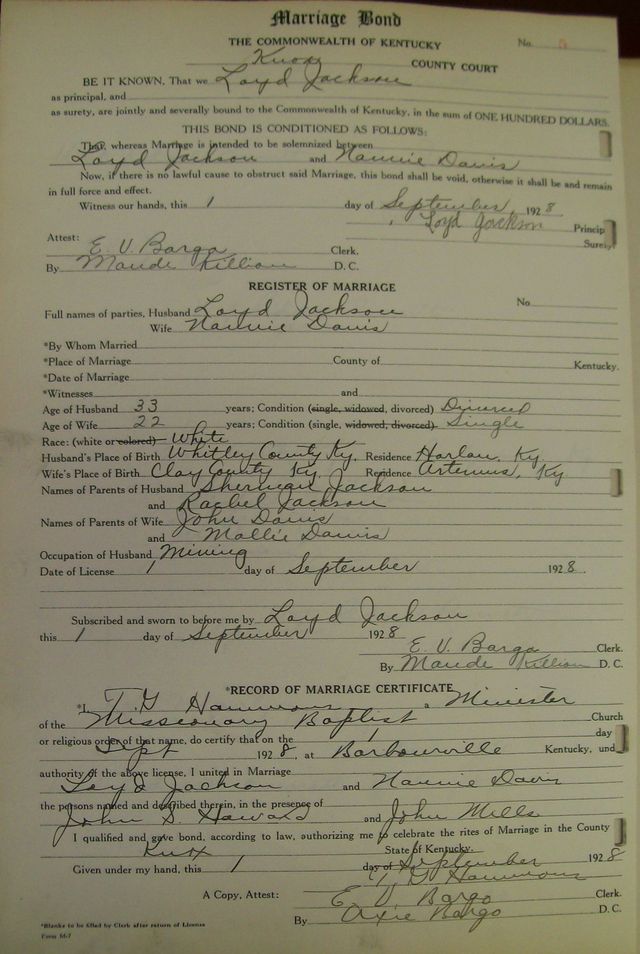 Marriage Bond
THE COMMONWEALTH OF KENTUCKY No. 5
Knox COUNTY COURT
BE IT KNOWN, That we Loyd Jackson
as principal, and
as surety, are jointly and severally bound to the Commonwealth of Kentucky, in the sum of ONE HUNDRED DOLLARS.
THIS BOND IS CONDITIONED AS FOLLOWS:
That, whereas Marriage is intended to be solemnized between
Loyd Jackson and Nannie Davis
Now, if there is no lawful cause to obstruct said Marriage, this bond shall be void, otherwise it shall be and remain
in full force and effect.
Witness our hands, this 1 day of September 1928
Loyd Jackson Princip
Surety
Attest:
E. V. Bargo Clerk.
By Maude Killion D. C.
REGISTER OF MARRIAGE
Full names of parties, Husband Loyd Jackson No
Wife Nannie Davis
*By Whom Married
*Place of Marriage County of Kentucky.
*Date of Marriage
*Witnesses and
Age of Husband 33 years; Condition (single, widowed, divorced) Divorced
Age of Wife 22 years; Condition (single, widowed, divorced) Single
Race: (white or colored) White
Husband's Place of Birth Whitley County Ky. Residence Harlan, Ky.
Wife's Place of Birth Clay County Ky. Residence Artemus, Ky
Names of Parents of Husband Sherman Jackson
and Rachel Jackson
Names of Parents of Wife John Davis
and Mollie Davis
Occupation of Husband Mining
Date of License 1 day of September 1928.
Subscribed and sworn to before me by Loyd Jackson
this 1 day of September 1928
E. V. Bargo Clerk.
By Maude Killion D. C.
*RECORD OF MARRIAGE CERTIFICATE
*I, T. G. Hammons, a Minister
of the Missionary Baptist Church
or religious order of that name, do certify that on the 1 day
Sept 1928, at Barbourville Kentucky, und
authority of the above license, I united in Marriage
Loyd Jackson and Nannie Davis
the persons named and described therein, in the presence of
John S. Howard and John Mills
I qualified and gave bond, according to law, authorizing me to celebrate the rites of Marriage in the County
Knox State of Kentucky.
Given under my hand, this 1 day of September 1928
T. G. Hammons
A Copy, Attest: E. V. Bargo Clerk.
By Axie Bargo D. C.
*Blanks to be filled by Clerk after return of License
Form 56-7